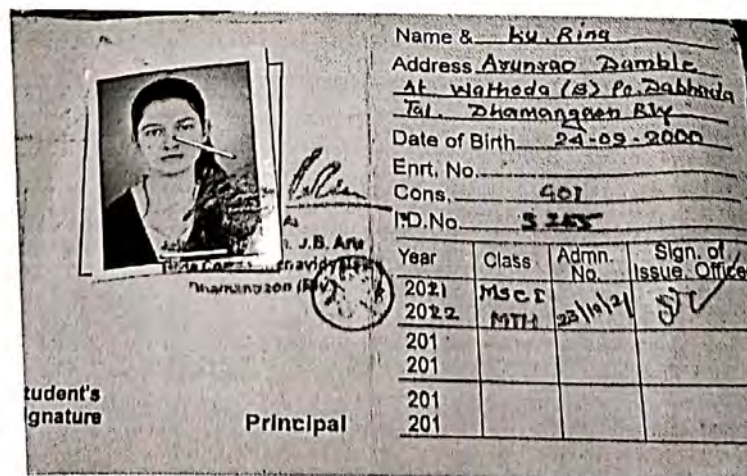 Name & Ku. Rina
Address Arunrao Damble
At Wathoda (B) Po. Dabhada
Tal. Dhamangaon Rly
Date of Birth 24-09-2000
Enrt. No.
Cons, GOI
I.D.No. 3255
Year Class Admn. No. Sign. of Issue. Office
2021 MSC I 23/10/21
2022 MTH
201
201
201
201
J.B. Arts
Dhamangaon (Rly)
tudent's
ignature
Principal